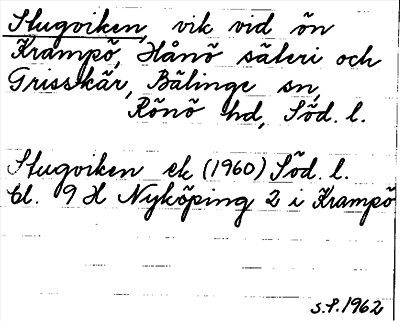 Slugviken, vik vid ön
Krampö, Hånö säteri och
Grisskär, Bälinge sn,
Rönö hd, Söd. l.
Slugviken ek (1960) Söd. l.
bl. 9 H Nyköping 2 i Krampö
S.P. 1962